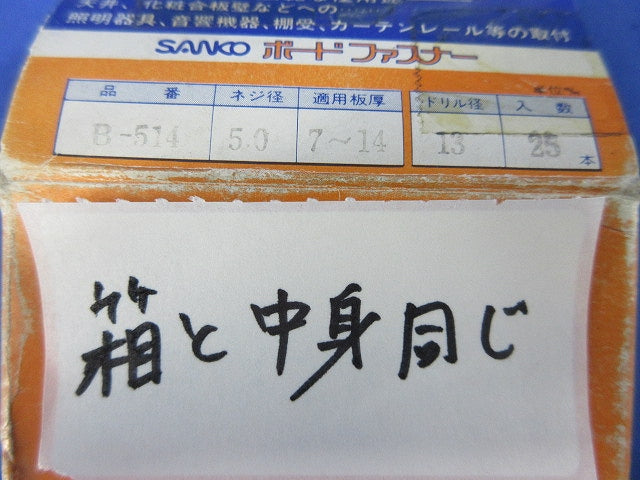 天井、化粧合板壁などへの
照明器具、音響機器、棚受、カーテンレール等の取付
SANKO ボードファスナー
単位%
品番 ネジ径 適用板厚 ドリル径 入数
B-514 5.0 7～14 13 25本
箱と中身同じ